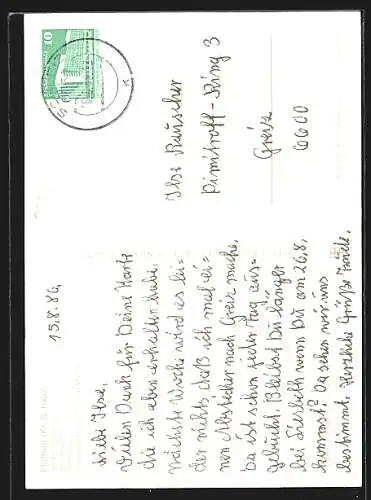 15.8.86,
Liebe Ilse,
Vielen Dank für Deine Karte
die ich eben erhalten habe.
nächste Woche wird es lei-
der nichts, daß ich mal ei-
nen Abstecher nach Greiz mache,
Da ist schon jeder Tag aus-
gebucht. Bleibst Du länger
bei wenn Du am 26.8.
kommst? Da sehen wir uns
bestimmt. Herzliche Grüße
Ilse Rauscher
Dimitroff-Ring 3
Greiz
6600
10